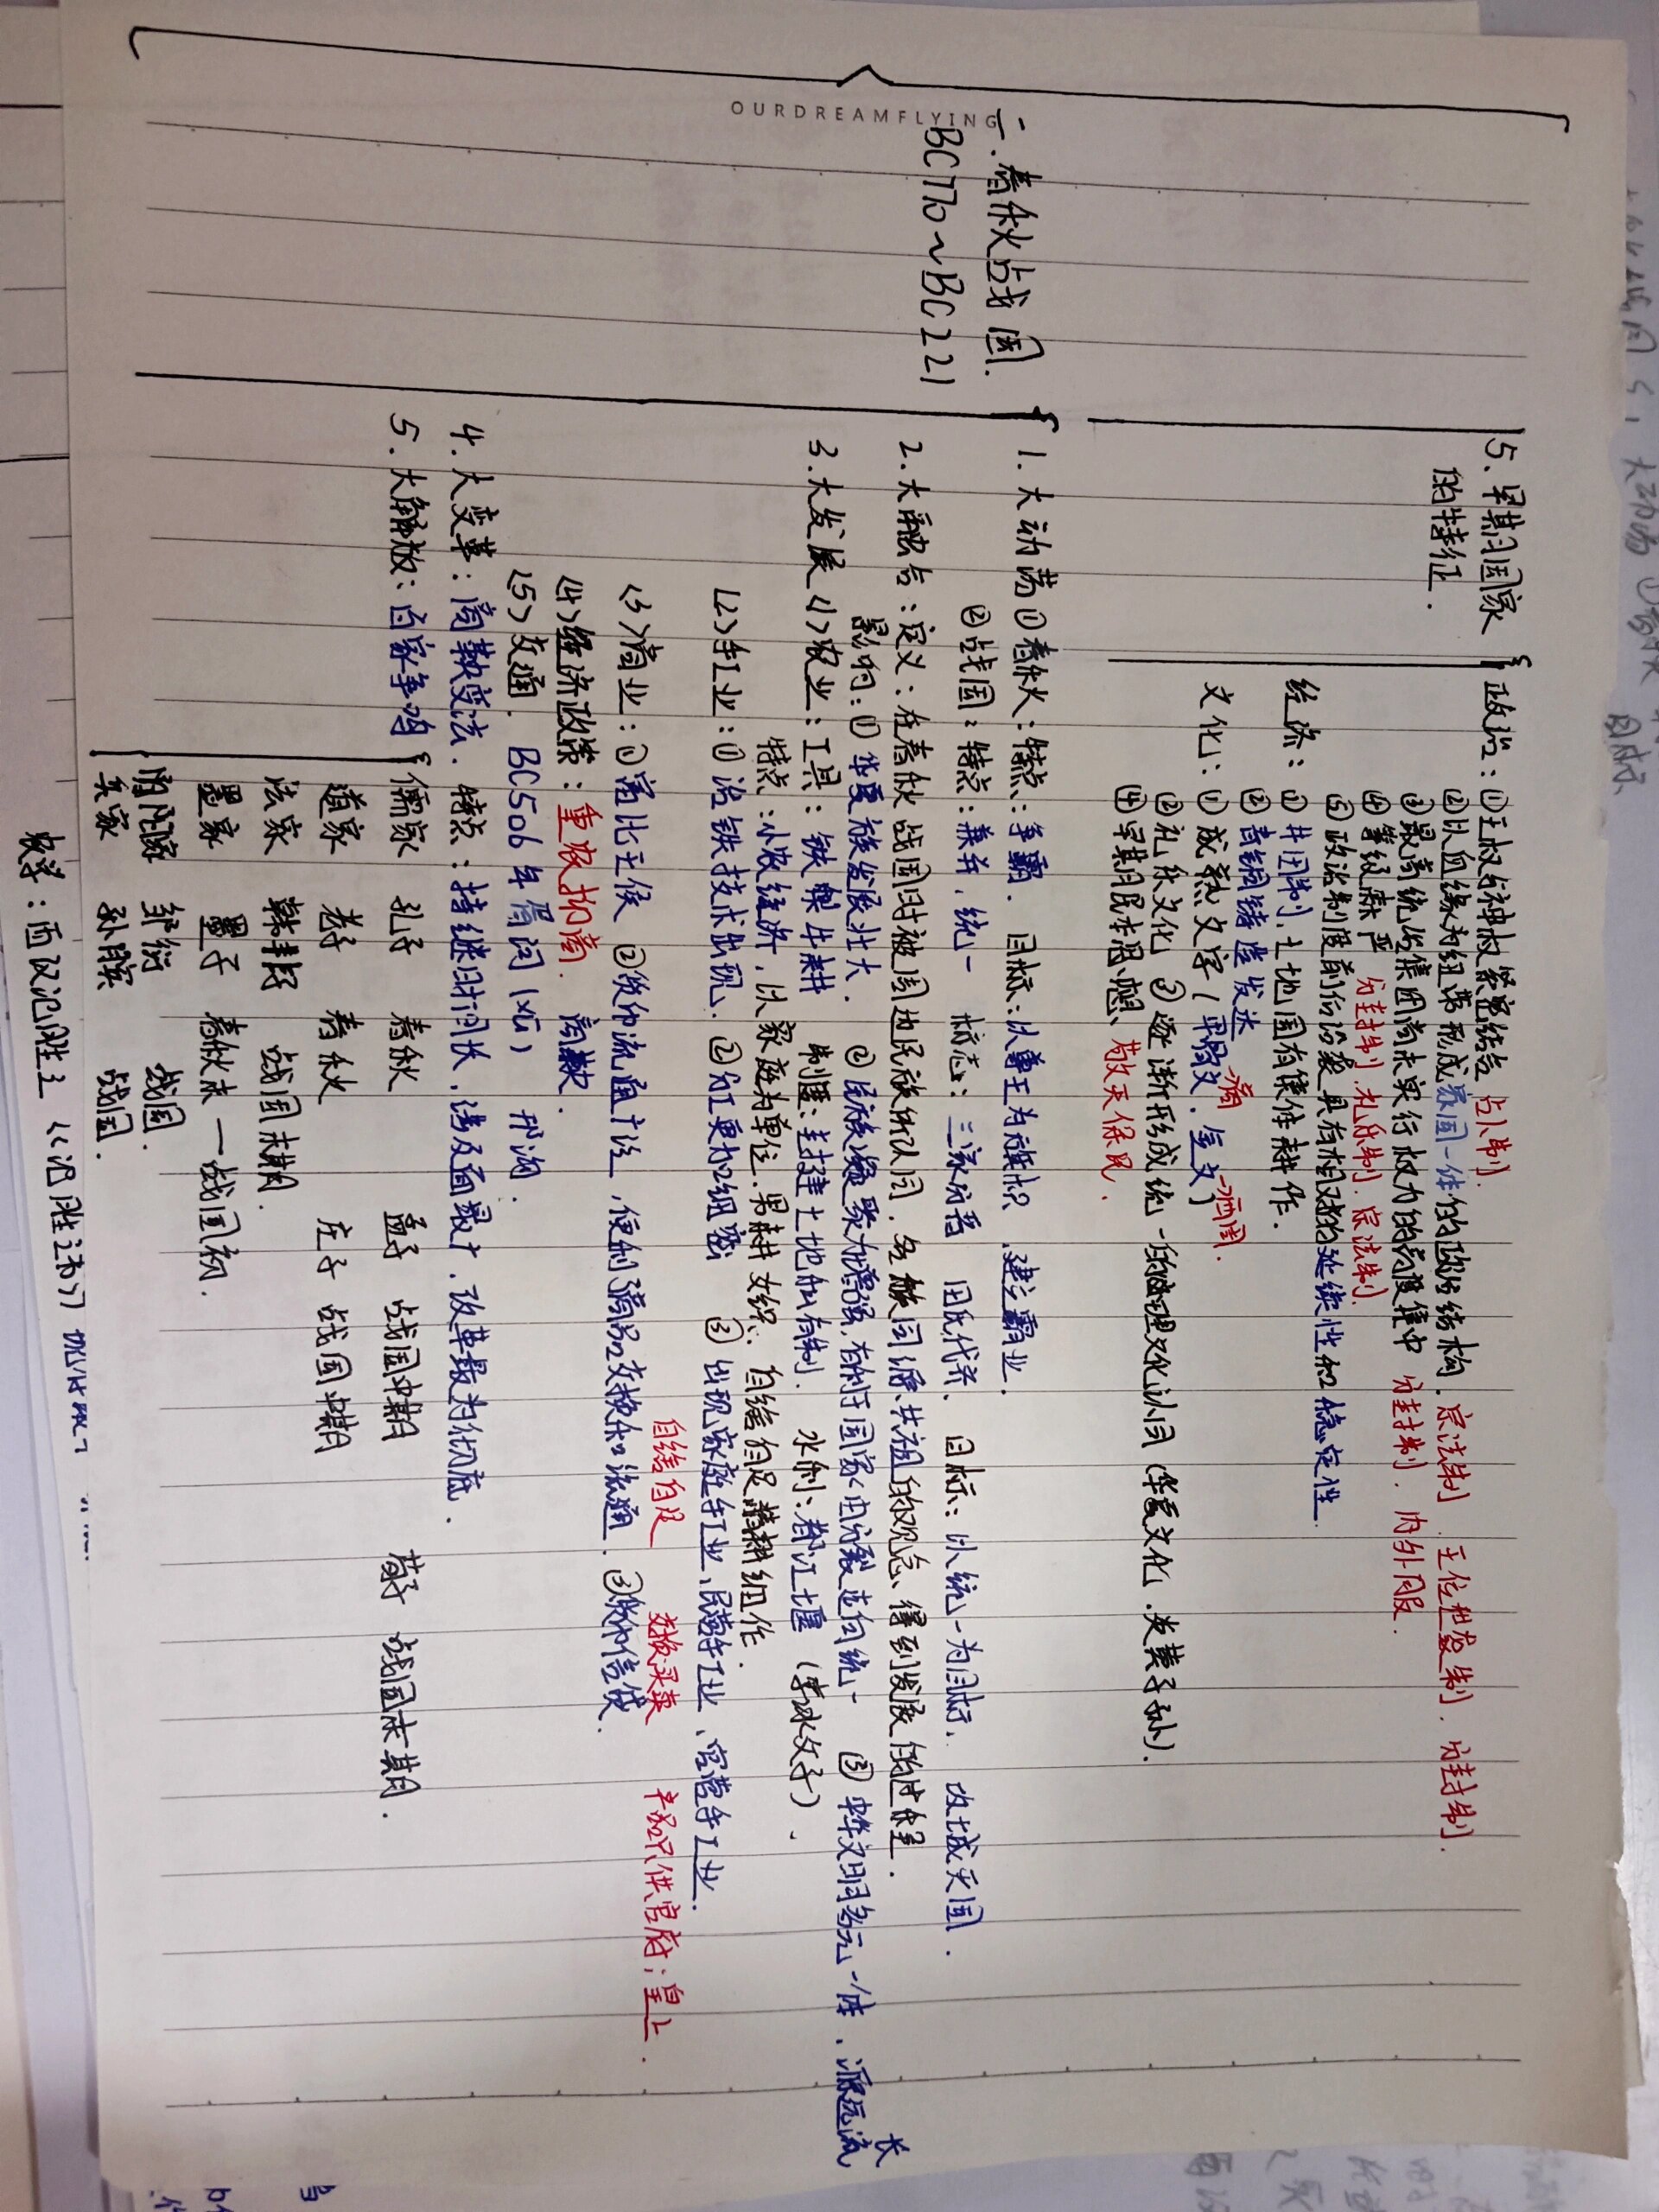 OURDREAMFLYING
5.早期国家
的特征.
政治:①王权与神权紧密结合 占卜制.
②以血缘为纽带形成家国一体的政治结构.宗法制.王位世袭制.分封制.
③最高统治集团尚未实行权力的高度集中 分封制.内外服.
④等级森严 分封制.礼乐制.宗法制.
⑤政治制度前后沿袭具有相对的延续性和稳定性.
经济:①井田制,土地国有集体耕作.
②青铜铸造发达
文化:①成熟文字(甲骨文→商.金文→西周.)
②礼乐文化 ③逐渐形成统一的心理文化认同(华夏文化.炎黄子孙).
④早期民本思想、敬天保民.
二.春秋战国.
BC770~BC221
1.大动荡①春秋:特点:争霸. 目标:以尊王为旗帜,建立霸业.
②战国:特点:兼并,统一 标志:三家分晋 田氏代齐、 目标:以统一为目标. 攻城灭国.
2.大融合:定义:在春秋战国时被周边民族所认同.各族同源、共祖的观念、得到发展的过程.
影响:①华夏族发展壮大. ②民族凝聚力增强,有利于国家由分裂走向统一 ③中华文明多元一体,源远流长
3.大发展(1)农业:工具:铁犁牛耕 制度:封建土地私有制. 水利:都江堰(李冰父子).
特点:小农经济,以家庭为单位.男耕女织.自给自足精耕细作.
(2)手工业:①冶铁技术出现、②分工更加细密 ③出现家庭手工业、民营手工业、官营手工业.
自给自足 交换买卖 产品只供官府;皇上.
(3)商业:①富比王侯 ②货币流通广泛,便利了商品交换和流通.③货币信贷.
(4)经济政策:重农抑商. 商鞅.
(5)交通. BC506年胥河(运) 邗沟.
4.大变革:商鞅变法.特点:持续时间长,涉及面最广,改革最为彻底.
5.大解放:百家争鸣 儒家 孔子 春秋 孟子 战国中期 荀子 战国末期.
道家 老子 春秋 庄子 战国中期
法家 韩非子 战国末期.
墨家 墨子 春秋末—战国初.
阴阳家 邹衍 战国.
兵家 孙膑 战国.
农学:西汉氾胜之《氾胜之书》